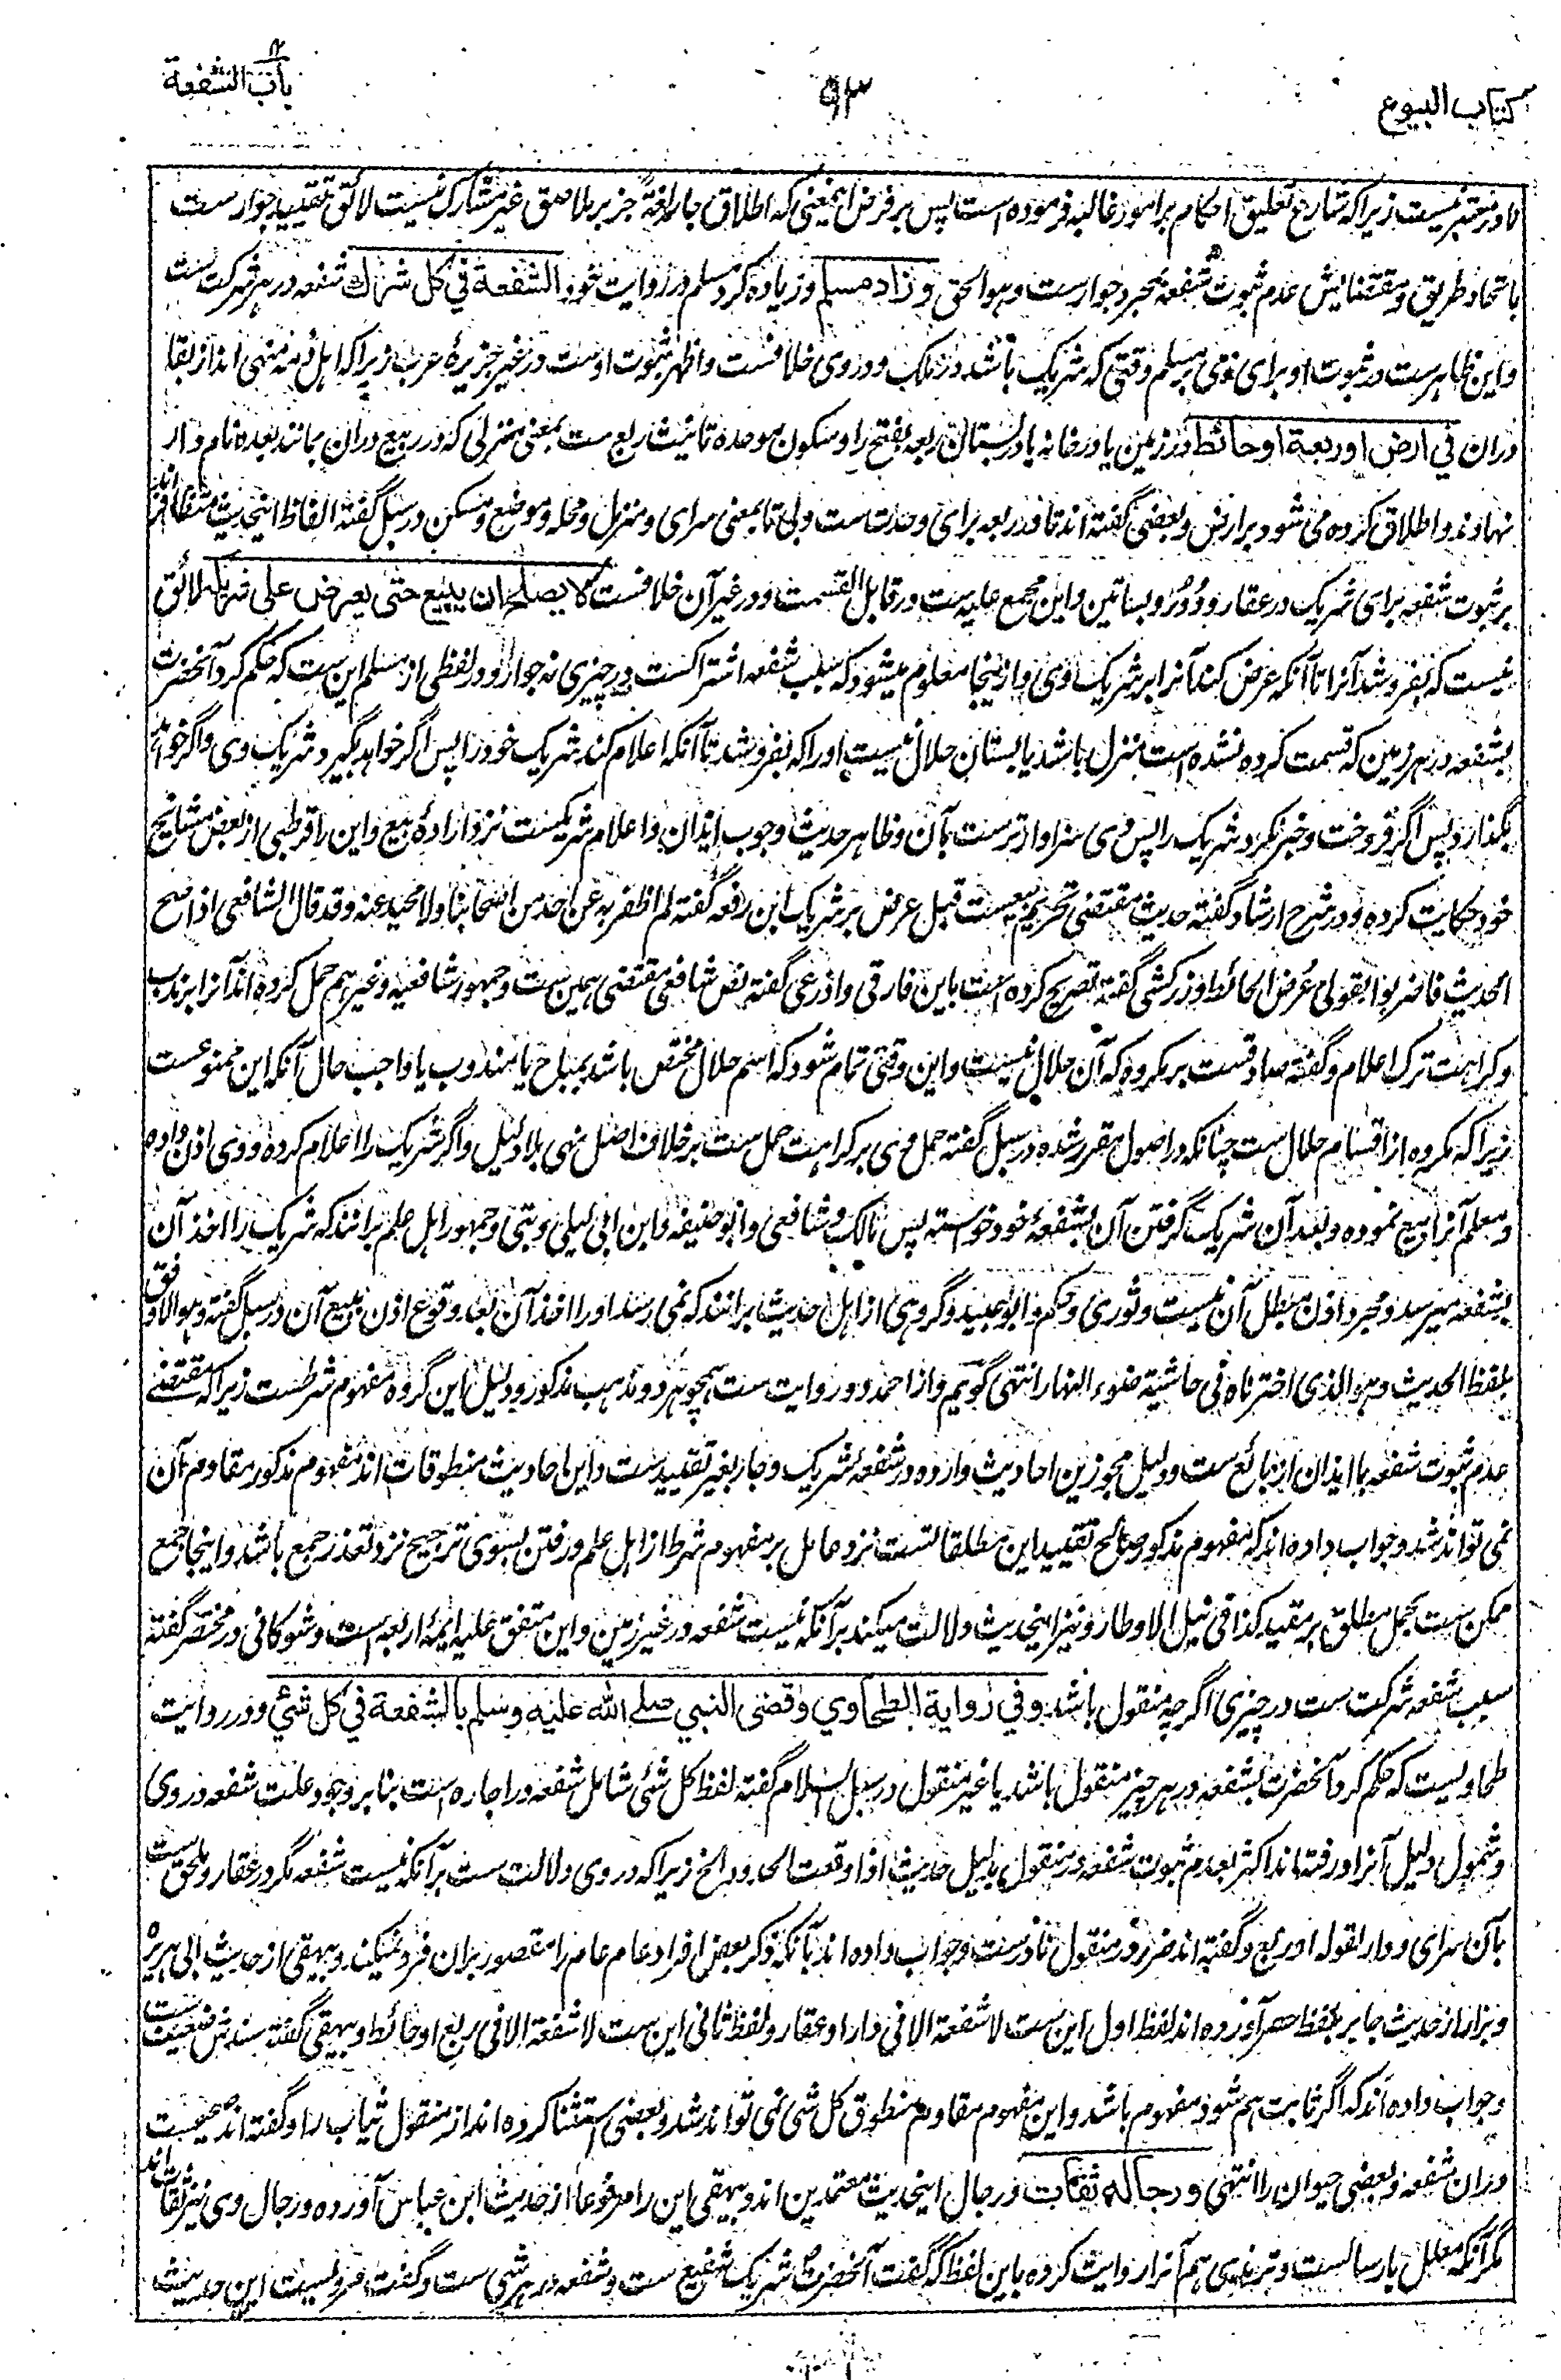 کتاب البیوع
۹۳
باب الشفعة
نادر معتبر نیست زیرا که شارع تعلیق احکام بر امور غالبه فرموده است پس بر فرض اینمعنی که اطلاق جار لغةً جز بر ملاصق غیر مشارک نیست لائق تقیید جوارست
باتحاد طریق و مقتضایش عدم ثبوت شفعه بمجرد جوارست وهوالحق وزاد مسلم وزیاده کرد مسلم در روایت خود الشفعة في كل شرك شفعه در هر شرکت ست
و این ظاهرست در ثبوت او برای ذمی بر مسلم وقتی که شریک باشد در ملک و در وی خلافست و اظهر ثبوت اوست در غیر جزیرۂ عرب زیرا که اهل ذمه منهی اند از بقا
دران في ارض او ربعة او حائط در زمین یا در خانه یا در بستان ربعه بفتح را و سکون موحده تانیث ربع ست بمعنی منزلی که در ربیع دران بمانند بعده نام دار
نهادند و اطلاق کرده می شود بر ارض و بعضی گفته اند تا در ربعه برای وحدت ست و بی تا بمعنی سرای و منزل و محله و موضع و مسکن در سبل گفته الفاظ اینحدیث متظافر اند
بر ثبوت شفعه برای شریک در عقار و دُوْر و بساتین و این مجمع علیه ست در قابل القسمت و در غیر آن خلافست لا يصلح ان يبيع حتى يعرض على شريكه لائق
نیست که بفروشد آنرا تا آنکه عرض کند آنرا بر شریک وی و ازینجا معلوم میشود که سبب شفعه اشتراکست در چیزی نه جوار و در لفظی از مسلم این ست که حکم کرد آنحضرت
بشفعه در هر زمین که قسمت کرده نشده است منزل باشد یا بستان حلال نیست او را که بفروشد تا آنکه اعلام کند شریک خود را پس اگر خواهد بگیرد شریک وی و اگر خواهد
بگذارد پس اگر فروخت و خبر نکرد شریک را پس وی سزاوارترست بآن و ظاهر حدیث وجوب ایذان و اعلام شریکست نزد ارادۂ بیع و این را قرطبی از بعض مشایخ
خود حکایت کرده و در شرح ارشاد گفته حدیث مقتضی تحریم بیعست قبل عرض بر شریک ابن رفعه گفته لم اظفر به عن احد من اصحابنا ولا محید عنه وقد قال الشافعی اذا صح
الحدیث فاضربوا بقولی عُرض الحائط و زرکشی گفته تصریح کرده است باین فارقی و اذرعی گفته نص شافعی مقتضی همین ست و جمهور شافعیه و غیرهم حمل کرده اند آنرا بر ندب
و کراهت ترک اعلام و گفته صادقست بر مکروه که آن حلال نیست و این وقتی تمام شود که اسم حلال مختص باشد بمباح یا مندوب یا واجب حال آنکه این ممنوعست
زیرا که مکروه از اقسام حلال ست چنانکه در اصول مقرر شده در سبل گفته حمل وی بر کراهت حمل ست بر خلاف اصل نهی بلا دلیل و اگر شریک را اعلام کرده و وی اذن داده
و معلم آنرا بیع نموده و بعد آن شریک گرفتن آن بشفعۂ خود خواسته پس مالک و شافعی و ابو حنیفه و ابن ابی لیلی و بتی و جمهور اهل علم برانند که شریک را اخذ آن
بشفعه میرسد و مجرد اذن مبطل آن نیست و ثوری و حکم و ابو عبید و گروهی از اهل حدیث برانند که نمی رسد او را اخذ آن بعد وقوع اذن ببیع آن در سبل گفته وهو الاوفق
بلفظ الحدیث وهو الذی اخترناه فی حاشیة ضوء النهار انتهی گویم و از احمد دو روایت ست همچو هر دو مذهب مذکور و دلیل این گروه مفهوم شرطست زیرا که مقتضے
عدم ثبوت شفعه با ایذان از بائع ست و دلیل مجوزین احادیث وارده در شفعه شریک و جار بغیر تقییدست و این احادیث منطوقات اند مفهوم مذکور مقاوم آن
نمی تواند شد و جواب داده اند که مفهوم مذکور صالح تقیید این مطلقاتست نزد عامل بر مفهوم شرط از اهل علم و رفتن بسوی ترجیح نزد تعذر جمع باشد و اینجا جمع
ممکن ست بحمل مطلق بر مقید کذا فی نیل الاوطار و نیز اینحدیث دلالت میکند بر آنکه نیست شفعه در غیر زمین و این متفق علیه ایمۂ اربعه است و شوکانی در مختصر گفته
سبب شفعه شرکت ست در چیزی اگرچه منقول باشد وفي رواية الطحاوي وقضى النبي صلے الله عليه وسلم بالشفعة في كل شيء و در روایت
طحاویست که حکم کرد آنحضرت بشفعه در هر چیز منقول باشد یا غیر منقول در سبل السلام گفته لفظ کل شئ شامل شفعه در اجاره است بنا بر وجود علت شفعه در وی
و شمول دلیل آنرا و رفته اند اکثر بعدم ثبوت شفعه در منقول بدلیل حدیث اذا وقعت الحدود الخ زیرا که در وی دلالت ست بر آنکه نیست شفعه مگر در عقار و ملحق ست
بآن سرای و دار لقوله او ربع و گفته اند ضرر در منقول نادرست و جواب داده اند بآنکه ذکر بعض افراد عام عام را مقصور بران فرد نمیکند و بیهقی از حدیث ابی هریره
و بزار از حدیث جابر بلفظ حصر آورده اند لفظ اول این ست لا شفعة الا فی دار او عقار و لفظ ثانی این ست لا شفعة الا فی ربع او حائط و بیهقی گفته سندش ضعیف ست
و جواب داده اند که اگر ثابت هم شود مفهوم باشد و این مفهوم مقاوم منطوق کل شئ نمی تواند شد و بعضی استثنا کرده اند از منقول ثیاب را و گفته اند صحیحست
دران شفعه و بعضی حیوان را انتهی ورجاله ثقات و رجال اینحدیث معتمدین اند و بیهقی این را مرفوعا از حدیث ابن عباس آورده و رجال وی نیز ثقات اند
مگر آنکه معلل بارسالست و ترمذی هم آنرا روایت کرده باین لفظ که گفت آنحضرت شریک شفیع ست و شفعه در هر شی ست و گفت این حدیث